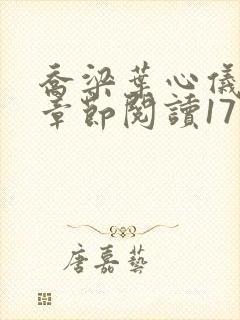 喬梁葉心儀
章節閱讀17
唐嘉藝